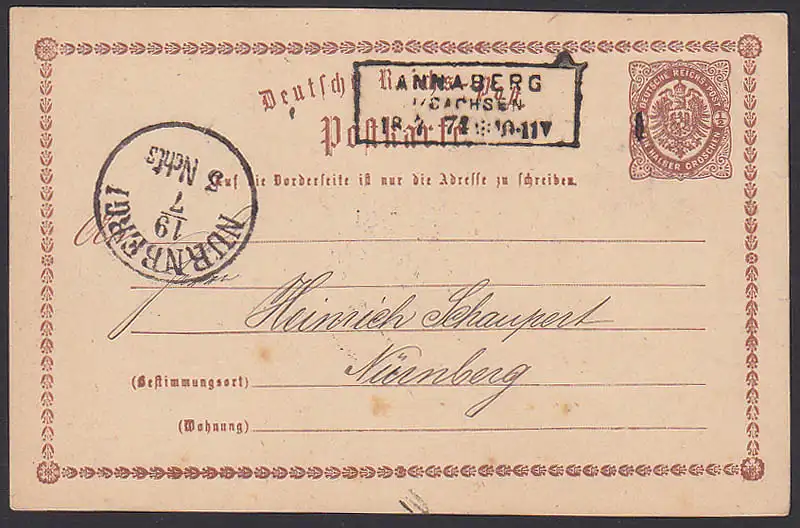 Deutsche Reichs-Post
ANNABERG
I/SACHSEN
18 7 74 10-11 V
Postkarte
DEUTSCHE REICHS-POST
1/2
EIN HALBER GROSCHEN
Auf die Vorderseite ist nur die Adresse zu schreiben.
NÜRNBERG I
19
7
5 Nchts
An
Herrn
Heinrich Schaupert
Nürnberg
(Bestimmungsort)
(Wohnung)